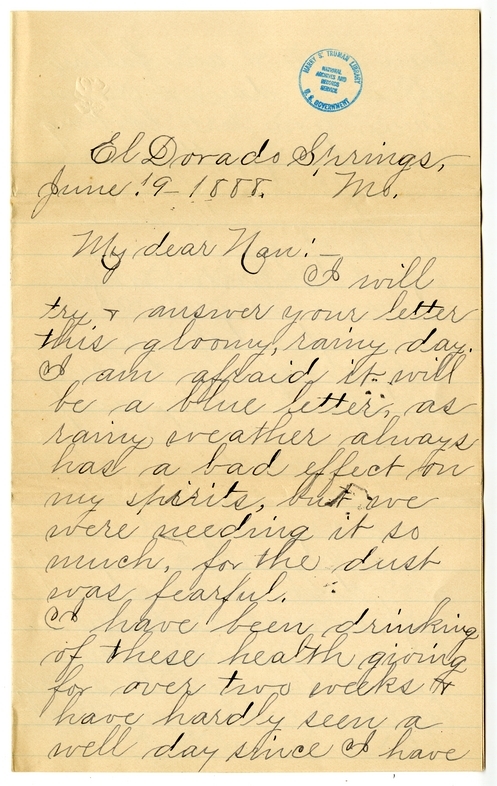 HARRY S. TRUMAN LIBRARY
NATIONAL
ARCHIVES AND
RECORDS
SERVICE
U. S. GOVERNMENT
El Dorado Springs,
June 19- 1888. Mo.
My dear Nan:-
I will
try & answer your letter
this gloomy, rainy day.
I am afraid it will
be a blue letter, as
rainy weather always
has a bad effect on
my spirits, but we
were needing it so
much, for the dust
was fearful.
I have been drinking
of these health giving
for over two weeks &
have hardly seen a
well day since I have